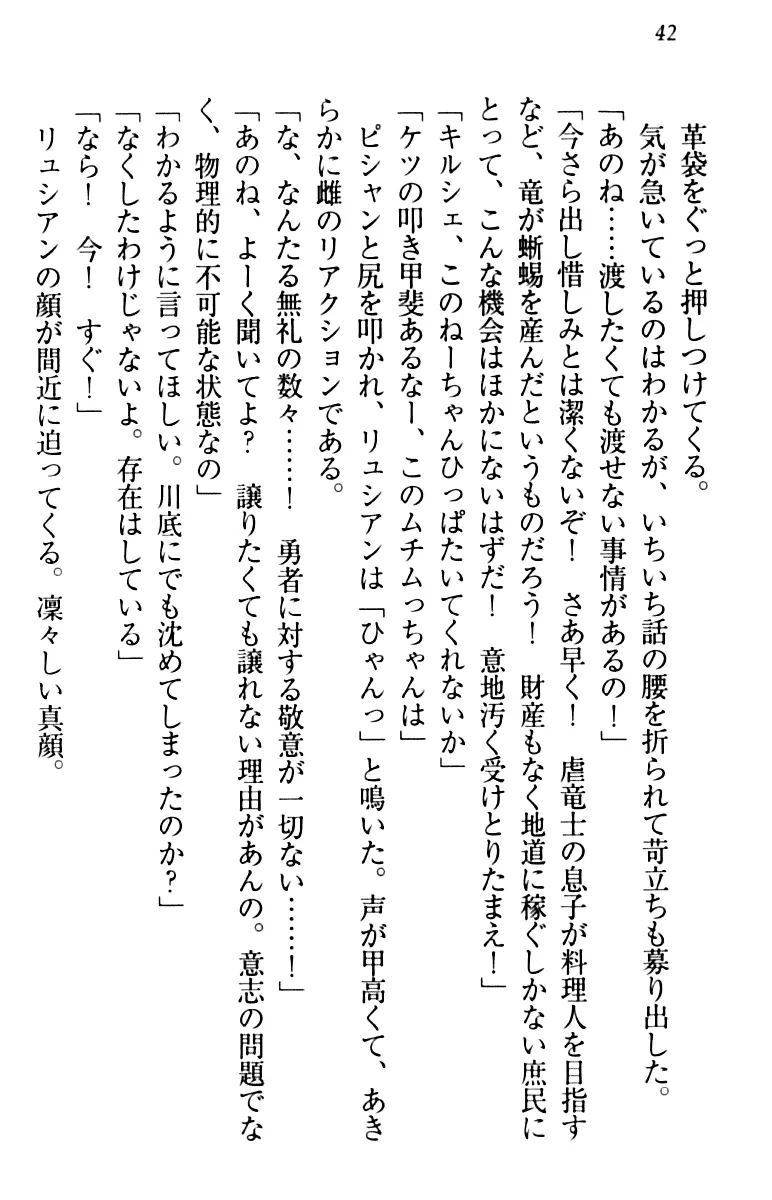 42
革袋をぐっと押しつけてくる。
気が急いているのはわかるが、いちいち話の腰を折られて苛立ちも募り出した。
「あのね……渡したくても渡せない事情があるの！」
「今さら出し惜しみとは潔くないぞ！　さあ早く！　虐竜士の息子が料理人を目指す
など、竜が蜥蜴を産んだというものだろう！　財産もなく地道に稼ぐしかない庶民に
とって、こんな機会はほかにないはずだ！　意地汚く受けとりたまえ！」
「キルシェ、このねーちゃんひっぱたいてくれないか」
「ケツの叩き甲斐あるなー、このムチムっちゃんは」
ピシャンと尻を叩かれ、リュシアンは「ひゃんっ」と鳴いた。声が甲高くて、あき
らかに雌のリアクションである。
「な、なんたる無礼の数々……！　勇者に対する敬意が一切ない……！」
「あのね、よーく聞いてよ？　譲りたくても譲れない理由があんの。意志の問題でな
く、物理的に不可能な状態なの」
「わかるように言ってほしい。川底にでも沈めてしまったのか？」
「なくしたわけじゃないよ。存在はしている」
「なら！　今！　すぐ！」
リュシアンの顔が間近に迫ってくる。凜々しい真顔。